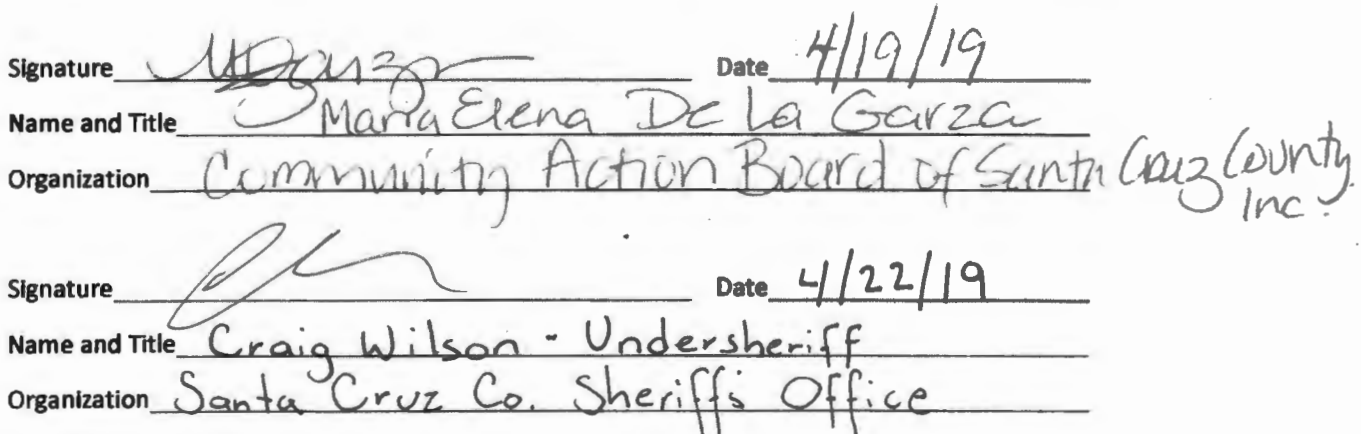 Signature Date 4/19/19
Name and Title Maria Elena De La Garza
Organization Community Action Board of Santa Cruz County
Inc.
Signature Date 4/22/19
Name and Title Craig Wilson - Undersheriff
Organization Santa Cruz Co. Sheriffs Office